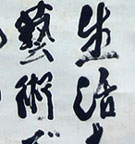 生活
藝術